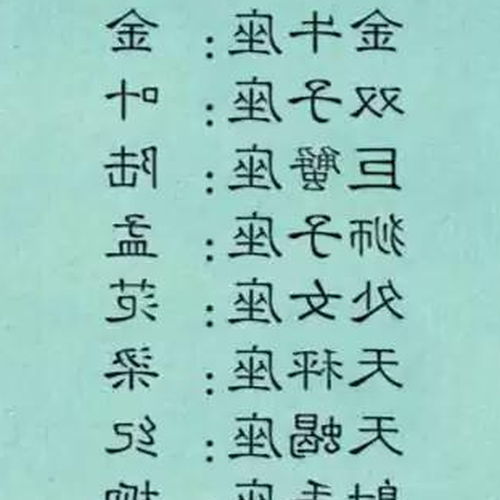 金牛座：金
双子座：叶
巨蟹座：陆
狮子座：孟
处女座：范
天秤座：梁
天蝎座：纪
射手座：柳